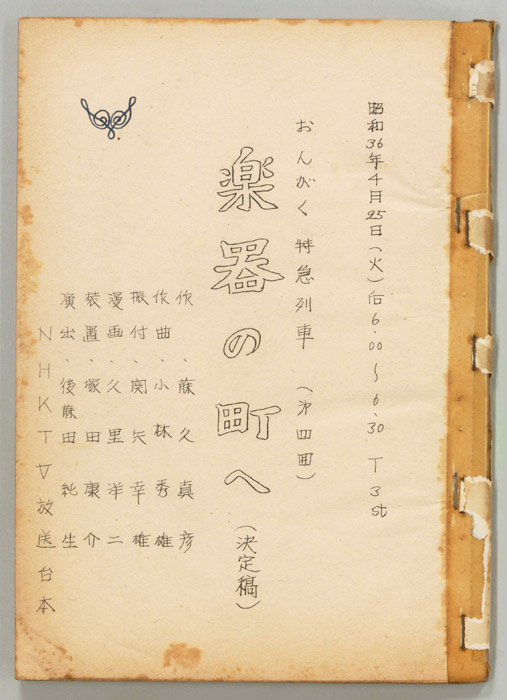 昭和36年4月25日(火)后6.00～6.30 T3st
おんがく特急列車 (㐧四回)
楽器の町へ(決定稿)
作、藤久真彦
作曲、小林秀雄
振付、関矢幸雄
漫画、久里洋二
装置、塚田康介
演出、後藤田純生
NHKTV放送台本